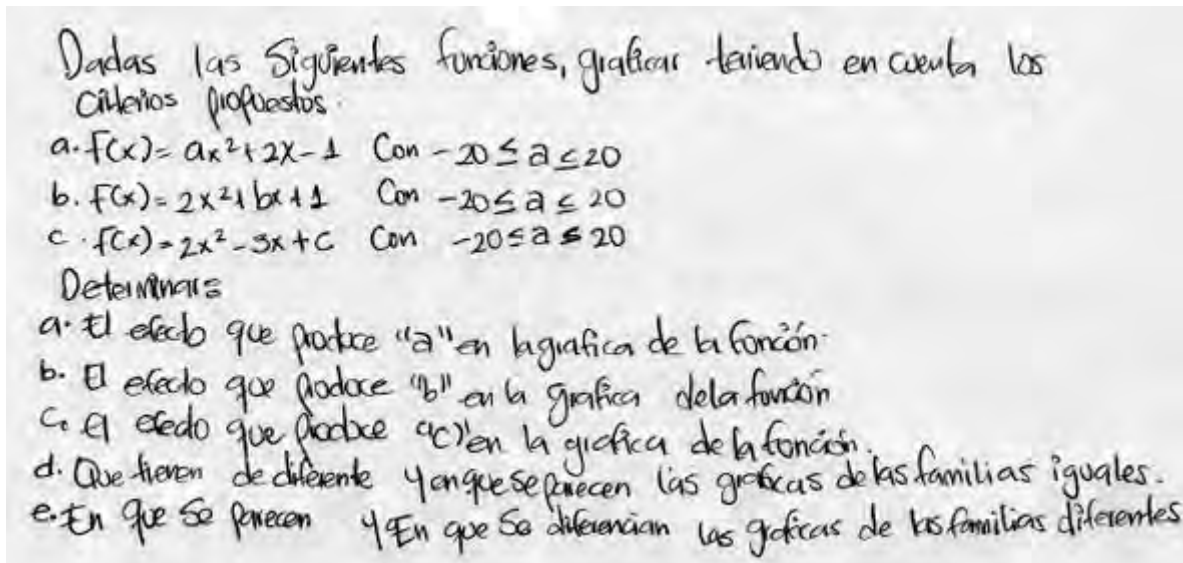 Dadas las Siguientes funciones, graficar teniendo en cuenta los
criterios propuestos.
a. f(x) = ax² + 2x - 1 Con -20 ≤ a ≤ 20
b. f(x) = 2x² + bx + 1 Con -20 ≤ a ≤ 20
c. f(x) = 2x² - 3x + c Con -20 ≤ a ≤ 20
Determinar:
a. El efecto que produce "a" en la grafica de la función.
b. El efecto que produce "b" en la grafica de la función
c. El efecto que produce "c" en la grafica de la función.
d. Que tienen de diferente y en que se parecen las graficas de las familias iguales.
e. En que se parecen y En que se diferencian las graficas de las familias diferentes